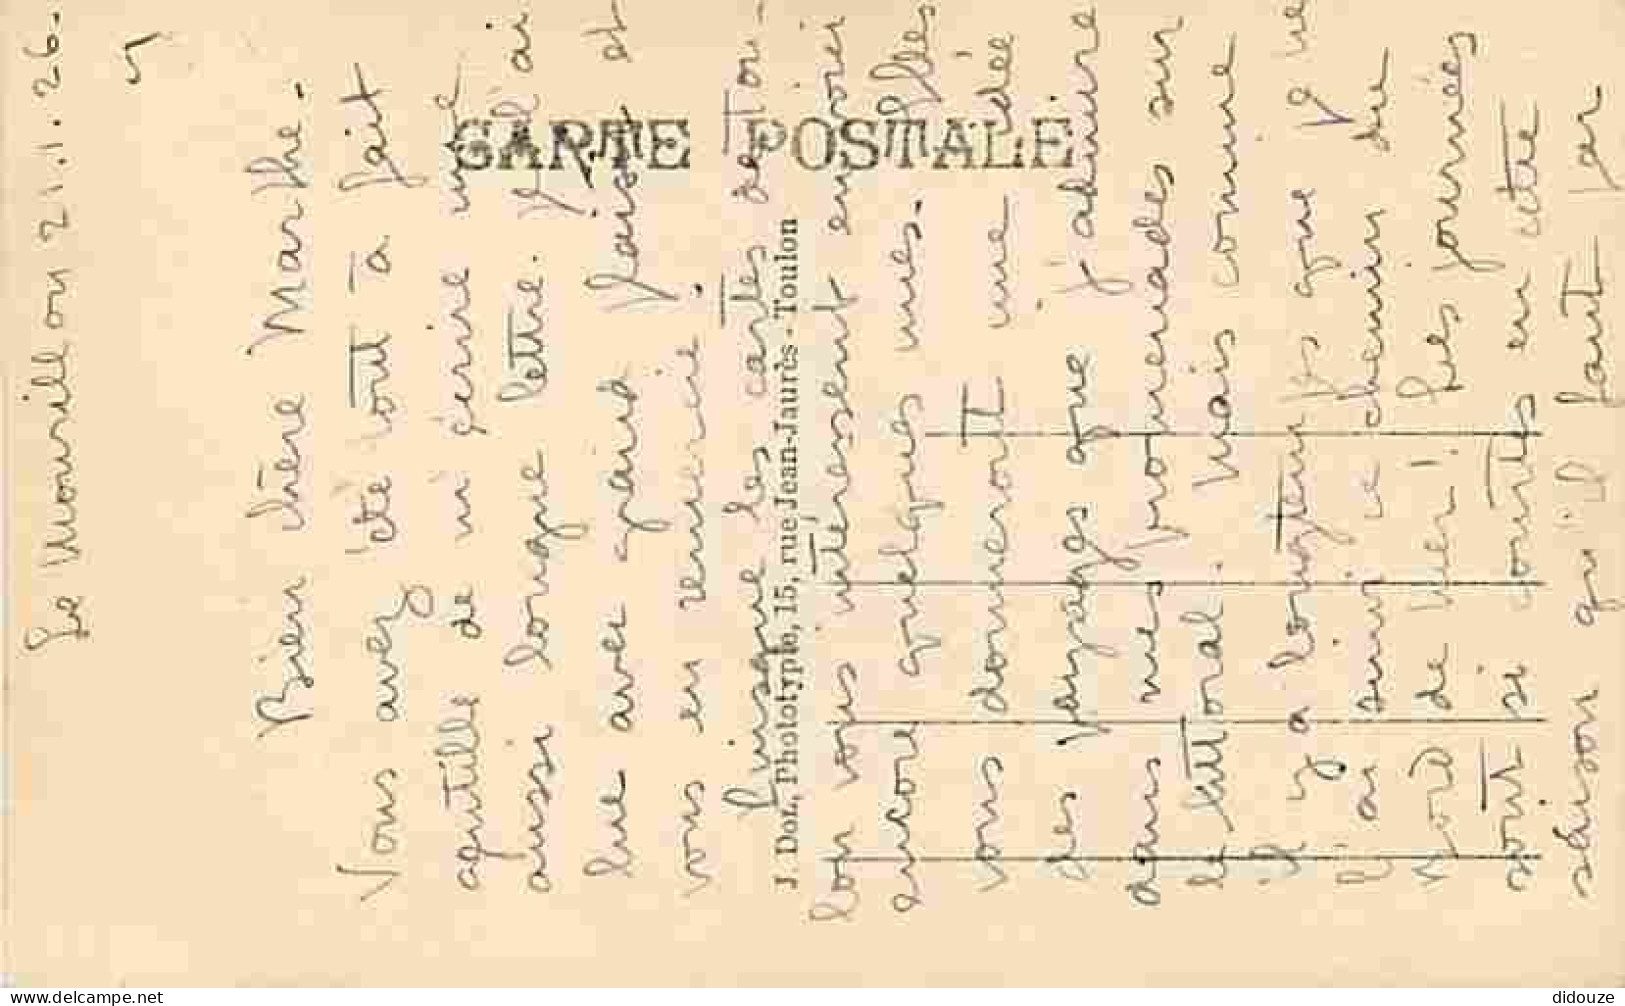 Le Mourillon 21.1.26.
Bien chère Marthe.
Vous avez été tout à fait
gentille de m'écrire une
aussi longue lettre. Je l'ai
lue avec grand plaisir et
vous en remercie.
Puisque les cartes de Tou-
lon vous intéressent en voici
encore quelques unes. Elles
vous donneront une idée
des paysages que j'admire
dans mes promenades sur
le littoral. Mais comme
il y a longtemps que je ne
l'ai suivi ce chemin du
bord de mer! Les journées
sont si courtes en cette
saison qu'il faut par
CARTE POSTALE
J. Dol, Phototypie, 15, rue Jean-Jaurès - Toulon
https://www.delcampe.net
didouze